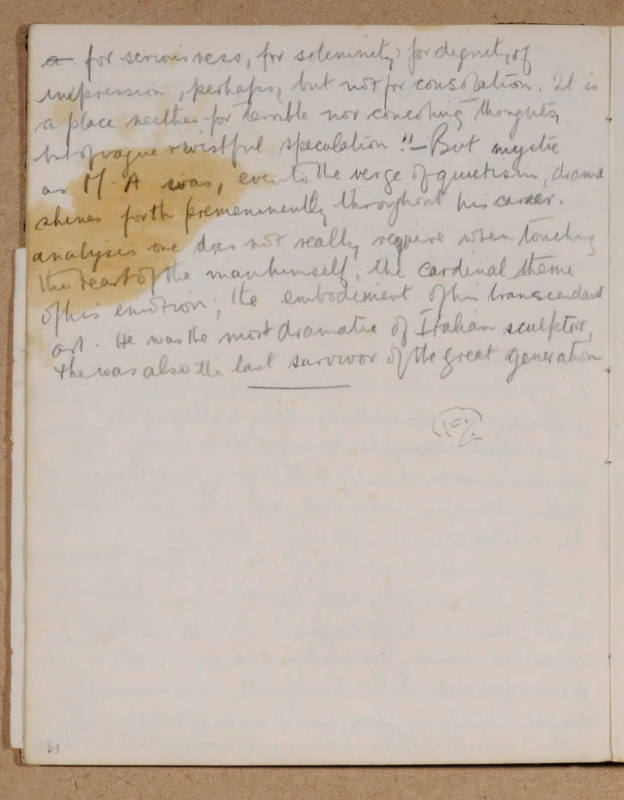 a for seriousness, for solemnity, for dignity of
impression, perhaps, but not for consolation. It is
a place neither for terrible nor consoling thoughts,
but of vague & wistful speculation." — But mystic
as M. A was, even to the verge of quietism, drama
shines forth premeninently throughout his career.
analysis one does not really require when touching
the heart of the man himself, the cardinal theme
of his emotion; the embodiment of his transcendant
art. He was the most dramatic of Italian sculptors,
& he was also the last survivor of the great generation
63